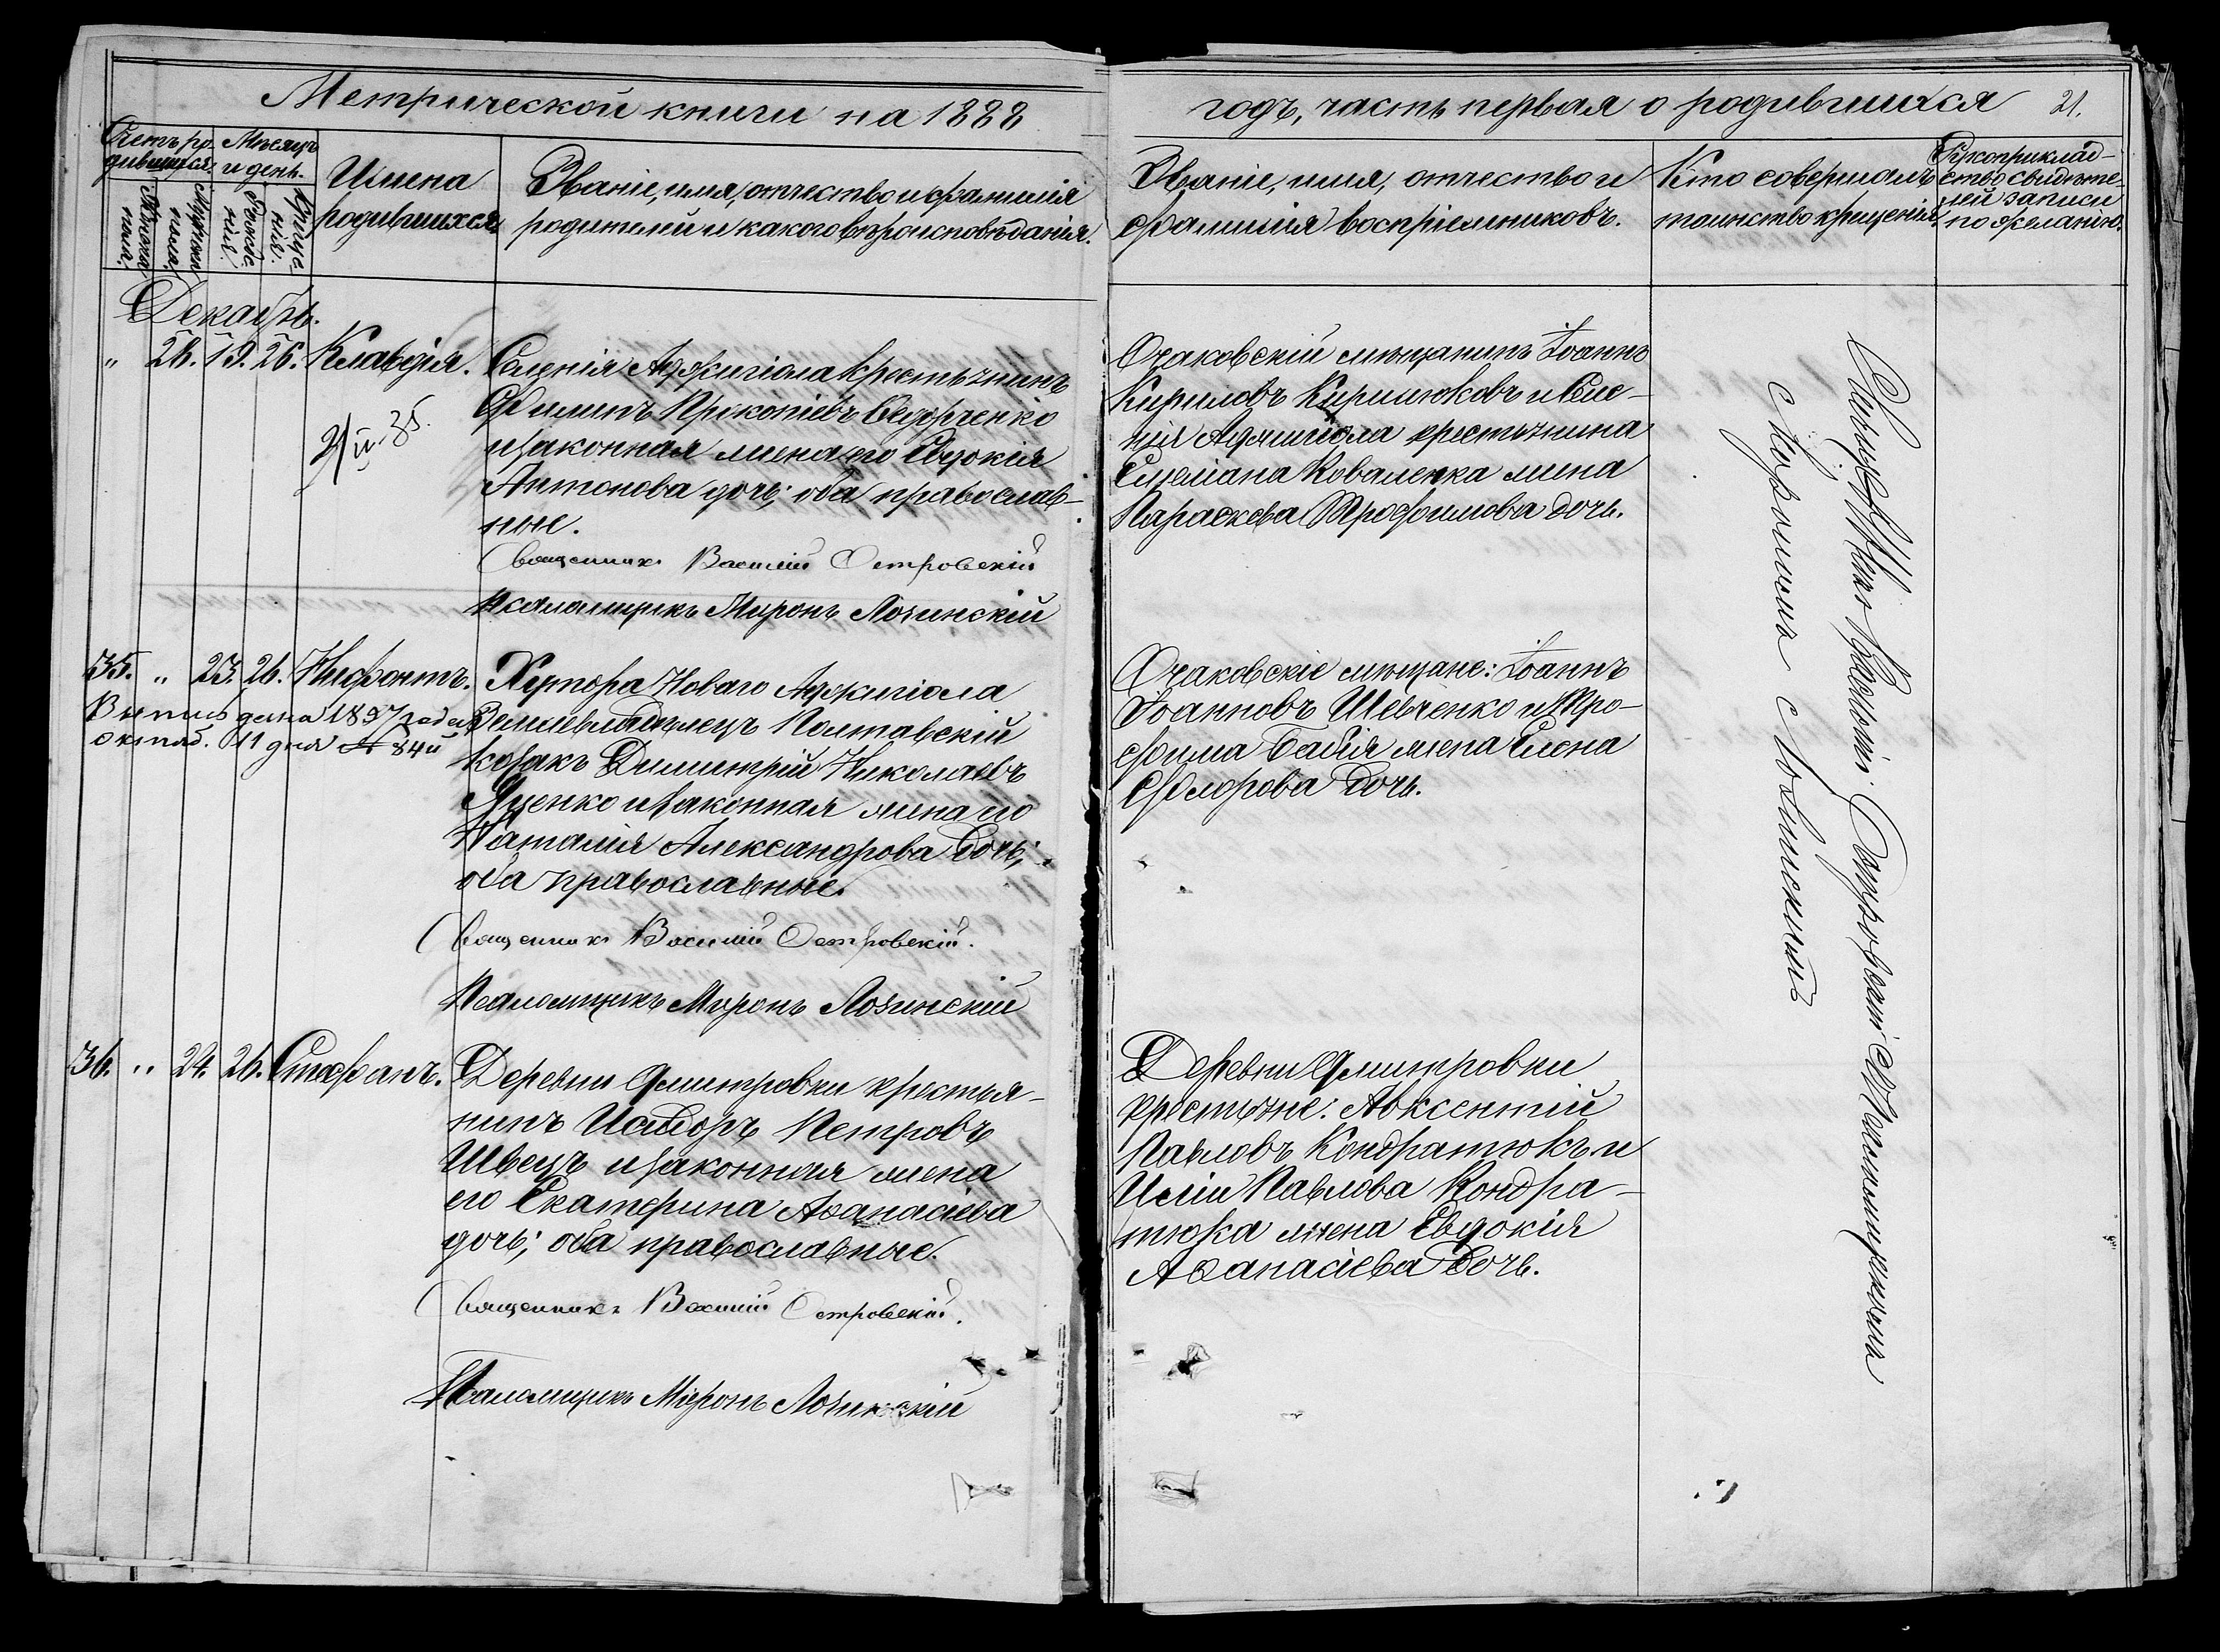 Метрической книги на 1888
годъ, часть первая о родившихся 21.
Счетъ ро-
дившихся.
Мѣсяцъ
и день.
Мужска
пола.
Женска
пола.
Рожде-
нія.
Креще-
нія.
Имена
родившихся.
Званіе, имя, отчество и фамилія
родителей и какого вѣроисповѣданія.
Званіе, имя, отчество и
фамилія воспріемниковъ.
Кто совершалъ
таинство крещенія.
Рукоприклад-
ство свидѣте-
лей записи
по желанію.
Декабрь.
" 28. 19. 26. Клавдія.
Селенія Аджигіола крестьянинъ
Филипъ Прокопіевъ Ѳедорченко
и законная жена его Евдокія
Антонова дочь; оба православ-
ные.
Священникъ Василій Островскій
Псаломщикъ Миронъ Лозинскій
Очаковскій мѣщанинъ Іоаннъ
Кириловъ Кирилюковъ и Селе-
нія Аджигіола крестьянина
Емеліана Коваленка жена
Параскева Трофимова дочь.
Священникъ Василій Островскій съ Псаломщикомъ
Мирономъ Лозинскимъ
35. " 23. 26. Нифонтъ.
Выпись дана 1897 года
октяб. 11 дня № 84й
Хутора Новаго Аджигіола
Землевладѣлецъ Полтавскій
козакъ Димитрій Николаевъ
Яценко и законная жена его
Наталія Александрова дочь;
оба православные.
Священникъ Василій Островскій.
Псаломщикъ Миронъ Лозинскій
Очаковскіе мѣщане: Іоаннъ
Іоанновъ Шевченко и Тро-
фима Бабія жена Елена
Ѳедорова дочь.
36. " 24. 26. Стефанъ.
Деревни Дмитровки крестья-
нинъ Исидоръ Петровъ
Швецъ и законная жена
его Екатерина Аѳанасіева
дочь; оба православные.
Священникъ Василій Островскій.
Псаломщикъ Миронъ Лозинскій
Деревни Дмитровки
крестьяне: Авксентій
Павловъ Кондратюкъ и
Иліи Павлова Кондра-
тюка жена Евдокія
Аѳанасіева дочь.